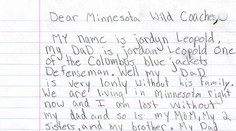 Dear Minnesota Wild Coaches,
MY name is jordyn Leopold,
my DaD is jordan Leopold One
of the Columbus blue jackets
Defenseman. Well my DaD
is very lonly without his family.
We are living in Minnesota right
now and I am lost without
my dad and so is my MOM, My 2
sisters, and my brother. My Dad